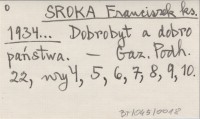 SROKA Franciszek ks.
1934... Dobrobyt a dobro
państwa. — Gaz. Podh.
22, nry 4, 5, 6, 7, 8, 9, 10.